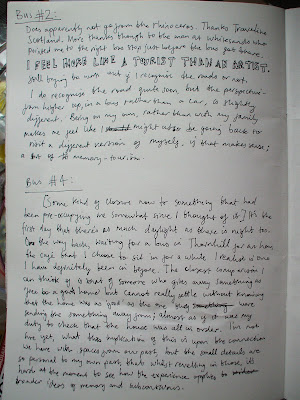 Bus #2:
Does apparently not go from the Rhinoceros. Thanks Traveline
Scotland. More thanks though to the man at Whitesands who
pointed me to the right bus stop just before the bus got there.
I FEEL MORE LIKE A TOURIST THAN AN ARTIST.
Still trying to work out if I recognise the roads or not.
I do recognise the road quite soon but the perspective
from higher up, in a bus rather than a car, is slightly
different. Being on my own, rather than with my family
makes me feel like I might be going back to
visit a different version of myself, if that makes sense;
a bit of memory-tourism.
Bus #4:
(Some kind of closure now to something that had
been pre-occupying me somewhat since I thought of it.) It's the
first day that there's as much daylight as there is night too.
On the way back, waiting for a bus in Thornhill for an hour
the café that I choose to sit in for a while I realise is one
I have definitely been in before. The closest comparison I
can think of is that of someone who gives away something as
pet to a good home but cannot really settle without knowing
that the home was as good as the one they were
sending the something away from; almost as if it was my
duty to check that the house was all in order. I'm not
sure yet, what the implication of this is upon the connection
we have with spaces from our past but the small details are
so personal to my own past that whilst revelling in those, it's
hard at the moment to see how the experience applies to
broader ideas of memory and subconscious.